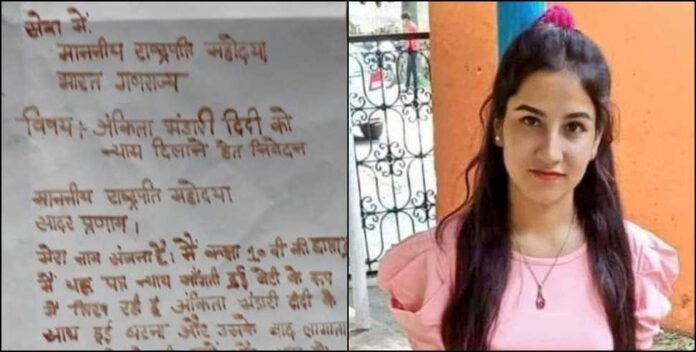 सेवा में:
माननीय राष्ट्रपति महोदया
भारत गणराज्य
विषय: अंकिता भंडारी दिदी को
न्याय दिलाने हेत निवेदन
माननीय राष्ट्रपति महोदया
सादर प्रणाम।
मेरा नाम संजना है। मैं कक्षा 10 वी की छात्रा
मैं यह पत्र न्याय माँगती हुई बेटी के रूप
में लिख रही हूँ अंकिता भंडारी दीदी के
साथ हुई घटना और उसके बाद लागातार